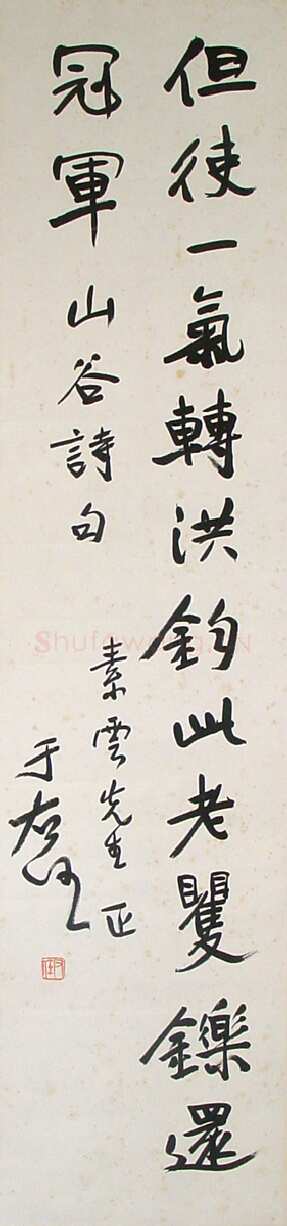 但使一氣轉洪鈞此老矍鑠還
冠軍山谷詩句
素雲先生正
于右任